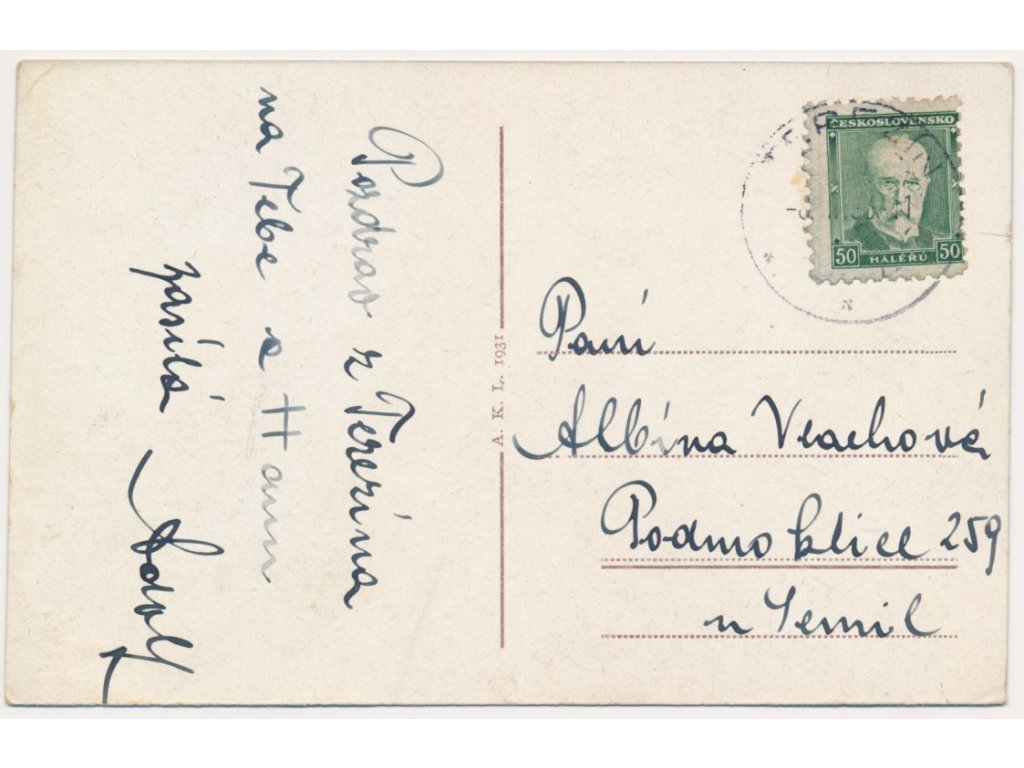 Pozdrav z Terezína
na Tebe a Hann
zasílá
Adolf
A. K. L. 1931
ČESKOSLOVENSKO
50 HALÉŘŮ 50
Paní
Albína Vlachová
Podmoklice 259
u Semil